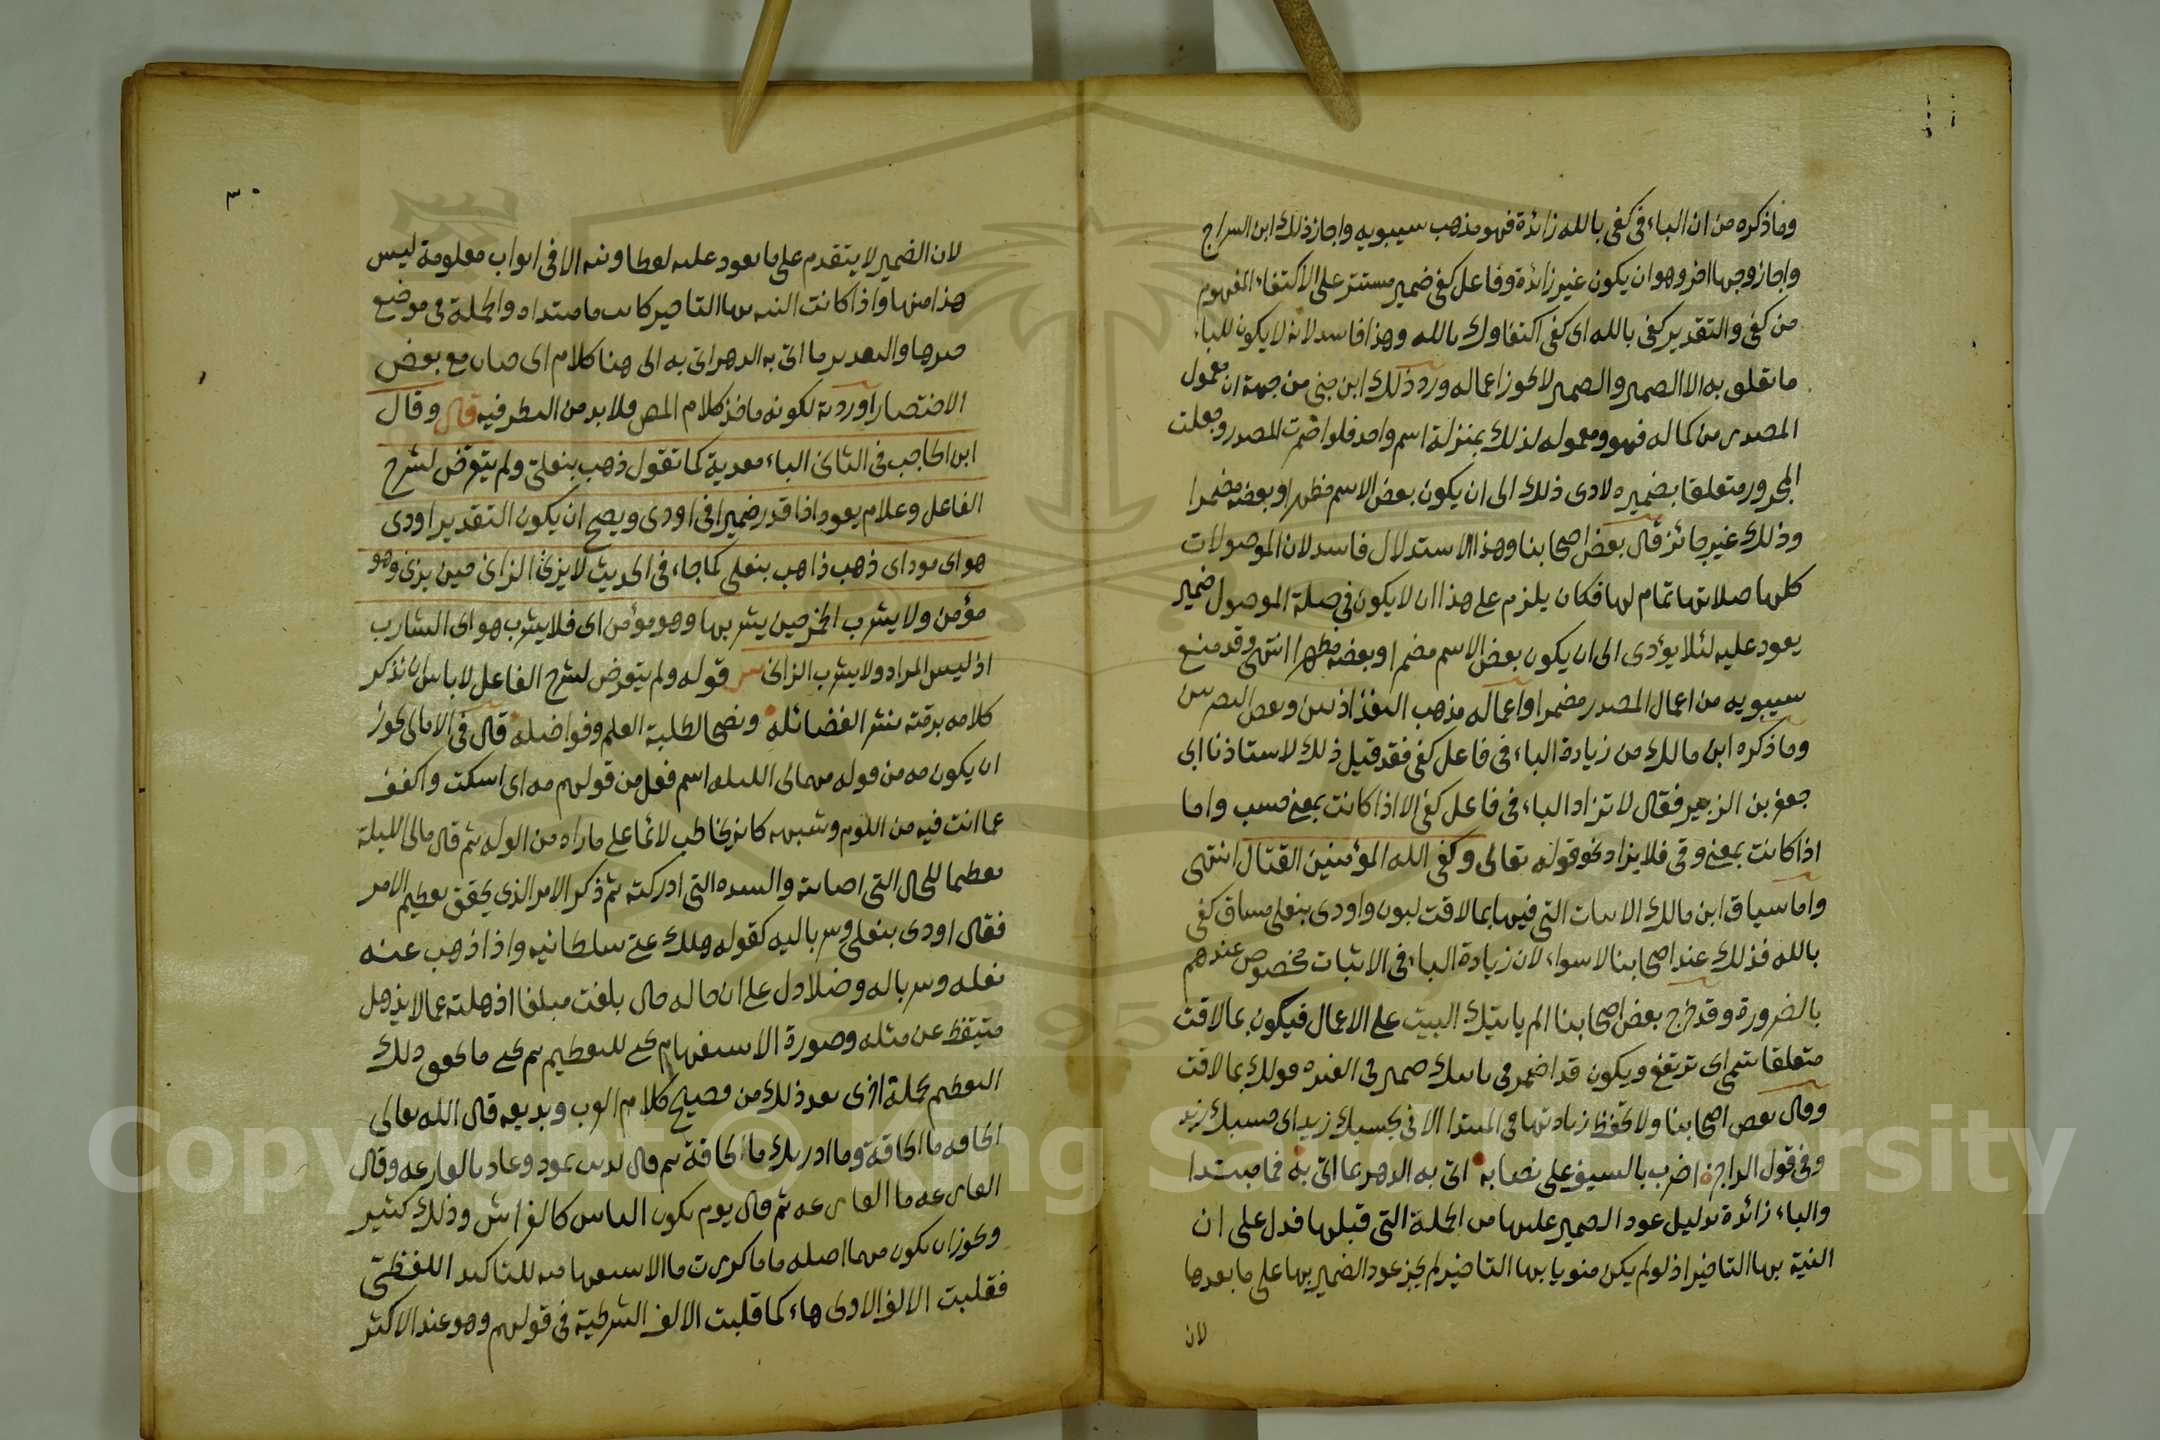 وما ذكره من ان الباء في كفى بالله زائدة فهو مذهب سيبويه واجاز ذلك ابن السراج
واجاز وجها اخر وهو ان يكون غير زائدة وفاعل كفى ضمير مستتر على الاكتفاء المفهوم
من كفى والتقدير كفى بالله اى كفى اكتفاوك بالله وهذا فاسد لانه لا يكون للباء
ما تتعلق به الا الضمير والضمير لا يجوز اعماله ورد ذلك ابن جني من جهة ان معمول
المصدر من كماله فهو ومعموله لذلك بمنزلة اسم واحد فلو اضمرت المصدر وجعلت
المجرور متعلقا بضميره لادى ذلك الى ان يكون بعض الاسم مظهرا وبعضه مضمرا
وذلك غير جائز قال بعض اصحابنا وهذا الاستدلال فاسد لان الموصولات
كلها صلاتها تمام لها فكان يلزم على هذا ان لا يكون في صلة الموصول ضمير
يعود عليه لئلا يؤدى الى ان يكون بعض الاسم مضمرا وبعضه مظهرا انتهى وقد منع
سيبويه من اعمال المصدر مضمرا واعماله مذهب البغداذيين وبعض البصريين
وما ذكره ابن مالك من زيادة الباء في فاعل كفى فقد قيل ذلك لاستاذنا ابى
جعفر بن الزبير فقال لا تزاد الباء في فاعل كفى الا اذا كانت بمعنى حسب واما
اذا كانت بمعنى وقى فلا يزاد نحو قوله تعالى وكفى الله المؤمنين القتال انتهى
واما سياق ابن مالك الابيات التي فيها بما لاقت لبون واودى بنعلي مساق كفى
بالله فذلك عند اصحابنا لا سواء لان زيادة الباء في الاثبات مخصوص عندهم
بالضرورة وقد خرج بعض اصحابنا الم ياتيك البيت على الاعمال فيكون بما لاقت
متعلقا بتنمى اى ترتفع ويكون قد اضمر في ياتيك ضمير في قولك بما لاقت
وقال بعض اصحابنا ولا تحفظ زيادتها في المبتدا الا في بحسبك زيد اى حسبك زيد
وفي قول الراجز اضرب بالسيف على نصابه اتى به الدهر بما اتى به فما مبتدا
والباء زائدة بدليل عود الضمير عليها من الجملة التي قبلها فدل على ان
النية بها التاخير اذ لو لم يكن منويا بها التاخير لم يجز عود الضمير بها على ما بعدها
لان
٣٠
لان الضمير لا يتقدم على ما يعود عليه لفظا ونية الا في ابواب معلومة ليس
هذا منها واذا كانت النية بها التاخير كانت ما مبتداه والجملة في موضع
خبرها والتقدير ما اتى به الدهر اتى به الى هنا كلام ابى حيان مع بعض
الاختصار اوردته لكونه ماخذ كلام المص فلا بد من النظر فيه قال وقال
ابن الحاجب في الثاني الباء معدية كما تقول ذهب بنعلي ولم يتعرض لشرح
الفاعل وعلام يعود اذا قدر ضميرا في اودى ويصح ان يكون التقدير اودى
هو اى مود اى ذهب ذاهب بنعلي كما جاء في الحديث لا يزنى الزانى حين يزنى وهو
مؤمن ولا يشرب الخمر حين يشربها وهو مؤمن اى فلا يشرب هو اى الشارب
اذ ليس المراد ولا يشرب الزانى قوله ولم يتعرض لشرح الفاعل لا باس ان نذكر
كلامه برمته نشرا لفضائله ونصحا لطلبة العلم وفواضله قال في الامالى يجوز
ان يكون مه من قوله مهما لى الليله اسم فعل من قولهم مه اى اسكت واكفف
عما انت فيه من اللوم وشبهه كانه يخاطب لائما على ما راه من الوله ثم قال ما لى الليلة
تعظيما للحال التي اصابته والشدة التي ادركته ثم ذكر الامر الذى يحقق تعظيم الامر
فقال اودى بنعلي وسرباليه كقوله هلك عني سلطانيه واذا ذهب عنه
نعله وسرباله وضلا دل على ان حاله حال بلغت مبلغا اذهلته عما لا يذهل
متيقظ عن مثله وصورة الاستفهام يجىء للتعظيم ثم يجىء ما يحقق ذلك
التعظيم بجملة اخرى بعد ذلك من فصيح كلام العرب وبديعه قال الله تعالى
الحاقة ما الحاقة وما ادريك ما الحاقة ثم قال كذبت ثمود وعاد بالقارعه وقال
القارعه ما القارعه ثم قال يوم يكون الناس كالفراش وذلك كثير
ويجوز ان يكون مهما اصله ما ما كررت ما الاستفهامية للتاكيد اللفظي
فقلبت الالف الاولى هاء كما قلبت الالف الشرطية في قولهم وهو عند الاكثر